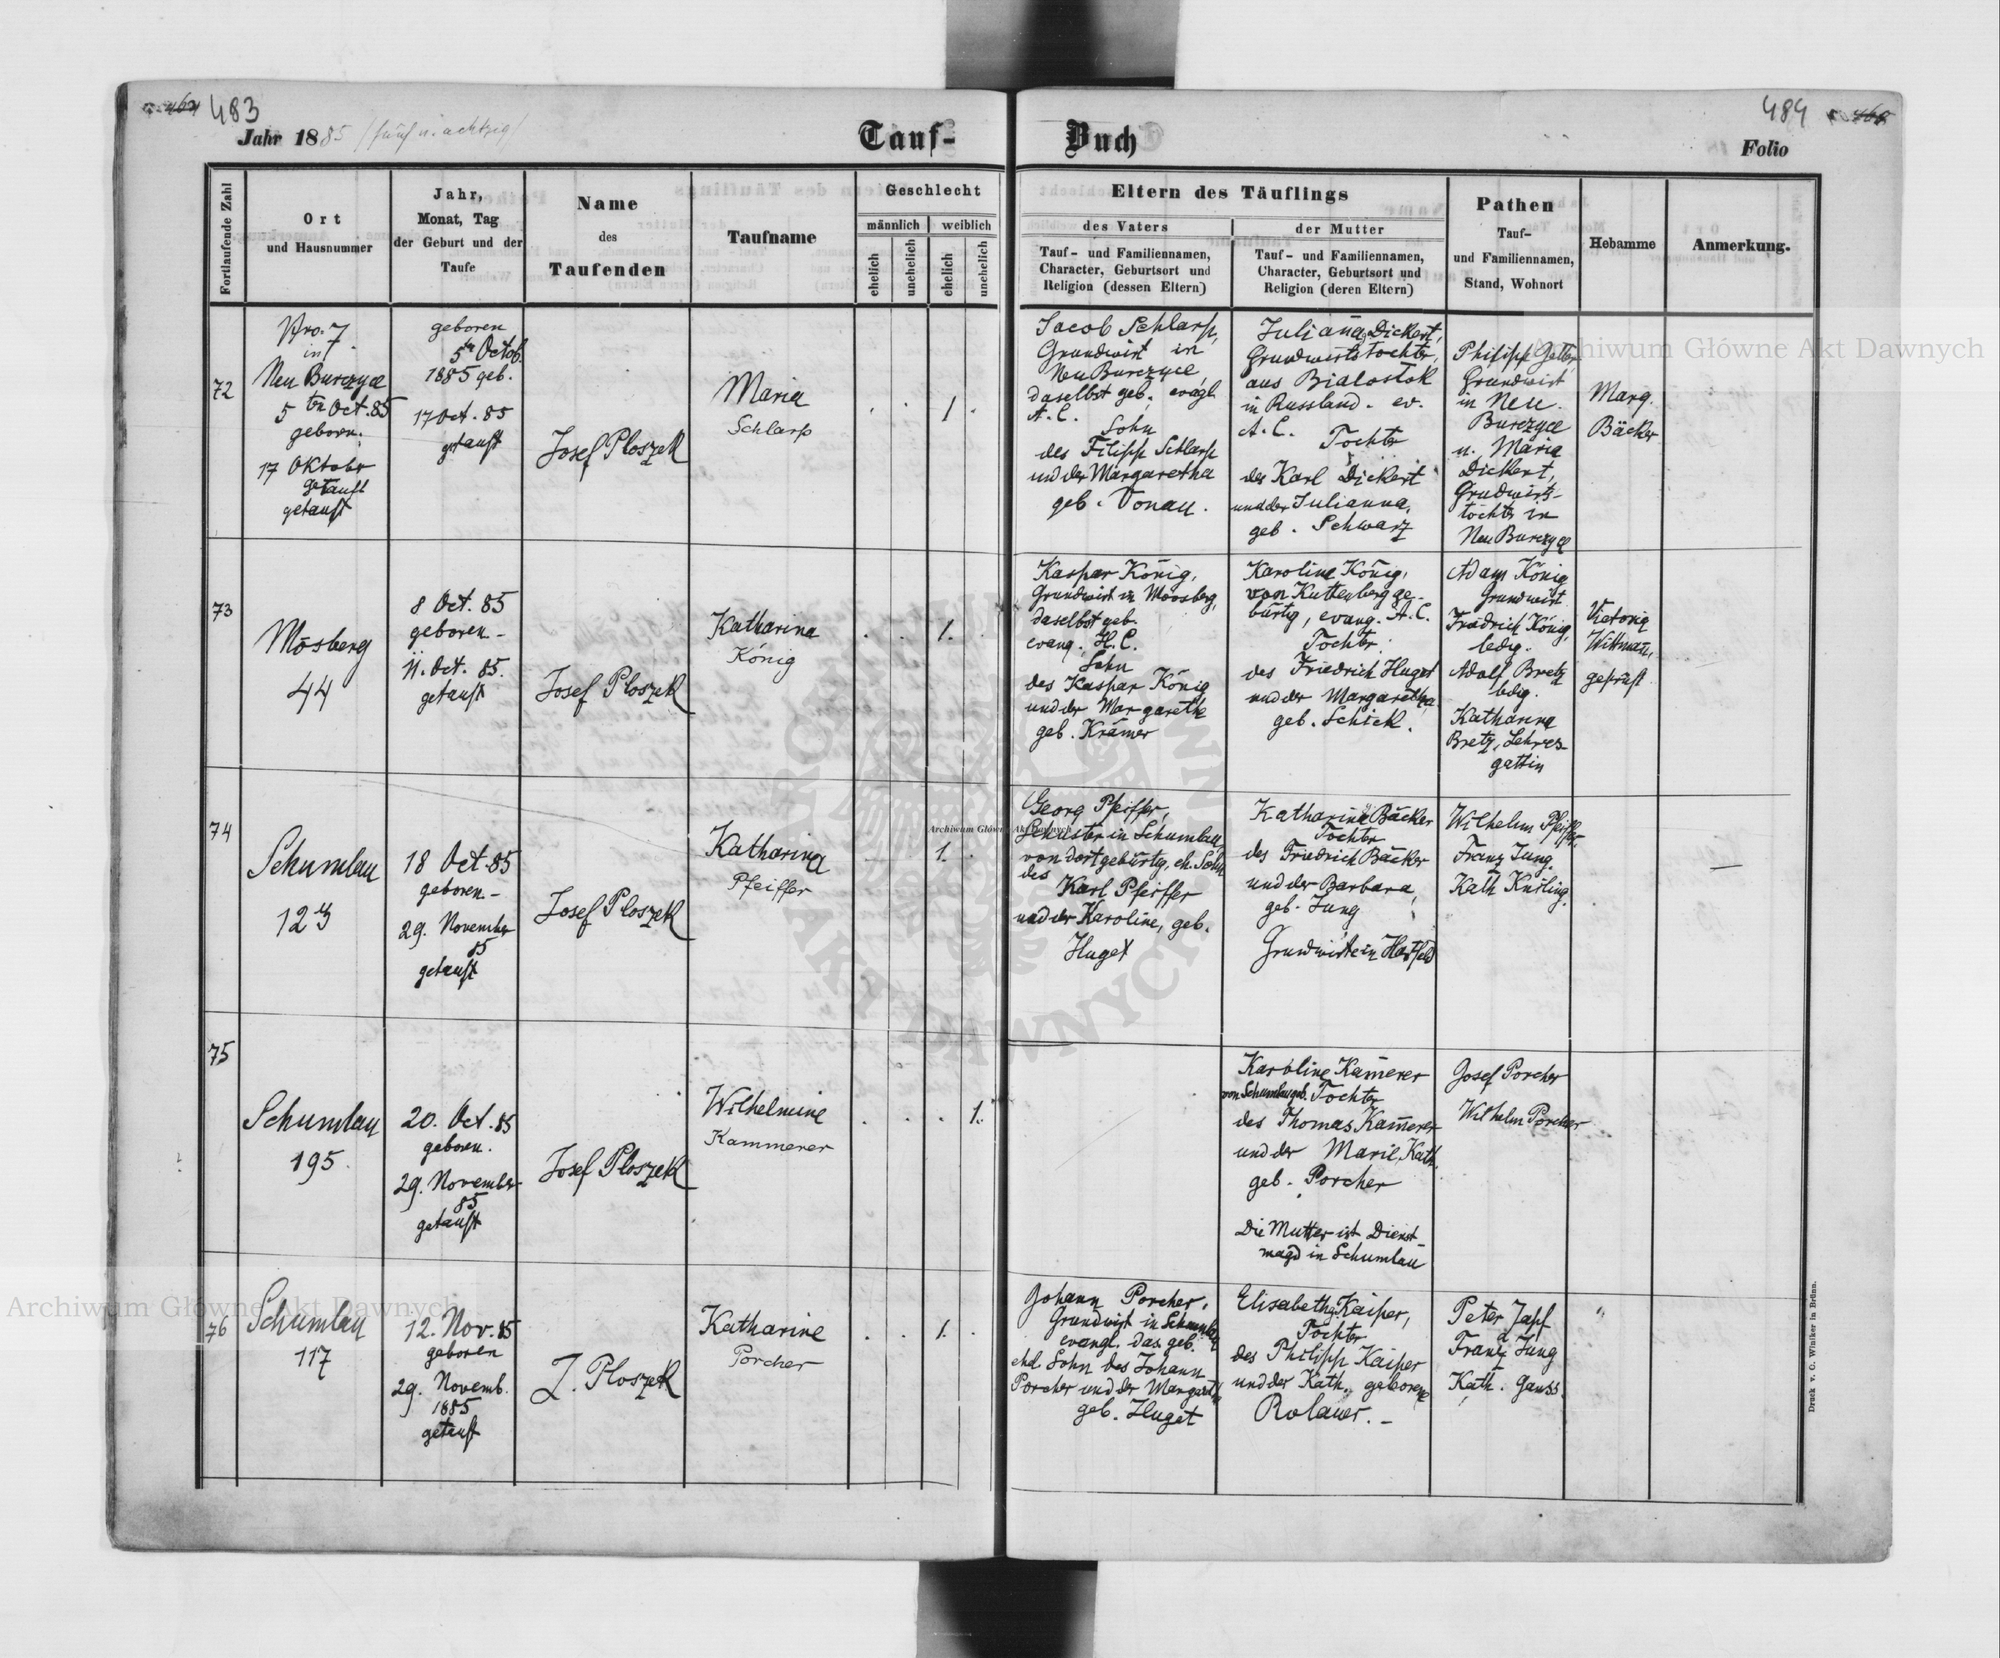 483
Jahr 1885 /fünf u. achtzig/
Tauf-
Buch
484
Folio
Fortlaufende Zahl
Ort
und Hausnummer
Jahr,
Monat, Tag
der Geburt und der
Taufe
Name
des
Taufenden
Taufname
Geschlecht
männlich
weiblich
ehelich
unehelich
ehelich
unehelich
Eltern des Täuflings
des Vaters
Tauf- und Familiennamen,
Character, Geburtsort und
Religion (dessen Eltern)
der Mutter
Tauf- und Familiennamen,
Character, Geburtsort und
Religion (deren Eltern)
Pathen
Tauf-
und Familiennamen,
Stand, Wohnort
Hebamme
Anmerkung.
72
Nro. 7
in
Neu Burczyce
5 ten Oct. 85
geborn.
17 Oktobr
getauft
getauft
geboren
5 ten Octob.
1885 geb.
17 Oct. 85
getauft
Josef Ploszek
Maria
Schlarp
1
Jacob Schlarp,
Grundwirt in
Neu Burczyce,
daselbst geb. evagl.
A. C.
Sohn
des Filipp Schlarp
und der Margaretha
geb. Donau.
Juliana Dickert,
Grundwirtstochter,
aus Bialostok
in Russland. ev.
A. C.
Tochter
des Karl Dickert
und der Julianna,
geb. Schwarz
Philipp
Grundwirt
in Neu
Burczyce
u. Maria
Dickert,
Grudwirts-
tochter in
Neu Burczyce
Marg.
Bäcker
73
Mösberg
44
8 Oct. 85
geboren -
11. Oct. 85.
getauft
Josef Ploszek
Katharina
König
1.
Kaspar König,
Grundwirt in Moosberg,
daselbst geb.
evang. H. C.
Sohn
des Kaspar König
und der Margarethe
geb. Krämer
Karoline König,
von Kuttenberg ge-
bürtig, evang. A. C.
Tochter
des Friedrich Huget
und der Margaretha
geb. Schick.
Adam König
Grundwirt.
Friedrich König,
ledig.
Adolf Bretz
ledig.
Katharina
Bretz, Lehrers-
gattin
Victoria
Wittman,
geprüft
74
Schumlau
123
18 Oct. 85
geboren -
29. November
85
getauft
Josef Ploszek
Katharina
Pfeiffer
1.
Georg Pfeiffer,
Schuster in Schumlau,
von dort gebürtig, eh. Sohn
des
Karl Pfeiffer
und der Karoline, geb.
Huget
Katharina Bäcker
Tochter
des Friedrich Bäcker
und der Barbara,
geb. Jung
Grundwirte in Hartfeld
Wilhelm Pfeiffer.
Franz Jung.
Kath
—
75
Schumlau
195
20. Oct. 85
geboren.
29. November
85
getauft
Josef Ploszek
Wilhelmine
Kammerer
1.
Karoline Kam̄erer
von Schumlau geb. Tochter
des Thomas Kam̄erer
und der Marie, Kath.
geb. Porcher
Die Mutter ist Dienst-
magd in Schumlau
Josef Porcher
Wilhelm Porcher
76
Schumlau
117
12. Nov. 85
geboren
29. Novemb.
1885
getauft
J. Ploszek
Katharine
Porcher
1.
Johann Porcher,
Grundwirt in Schumlau
evangl. das. geb.
ehel. Sohn des Johann
Porcher und der Margareth
geb. Huget
Elisabetha Kaiper,
Tochter
des Philipp Kaiper
und der Kath., geborene
Rolauer. -
Peter
Franz Jung
Kath. Gauss
"
Druck v. C. Winiker in Brünn.
Archiwum Główne Akt Dawnych
Archiwum Główne Akt Dawnych
Archiwum Główne Akt Dawnych